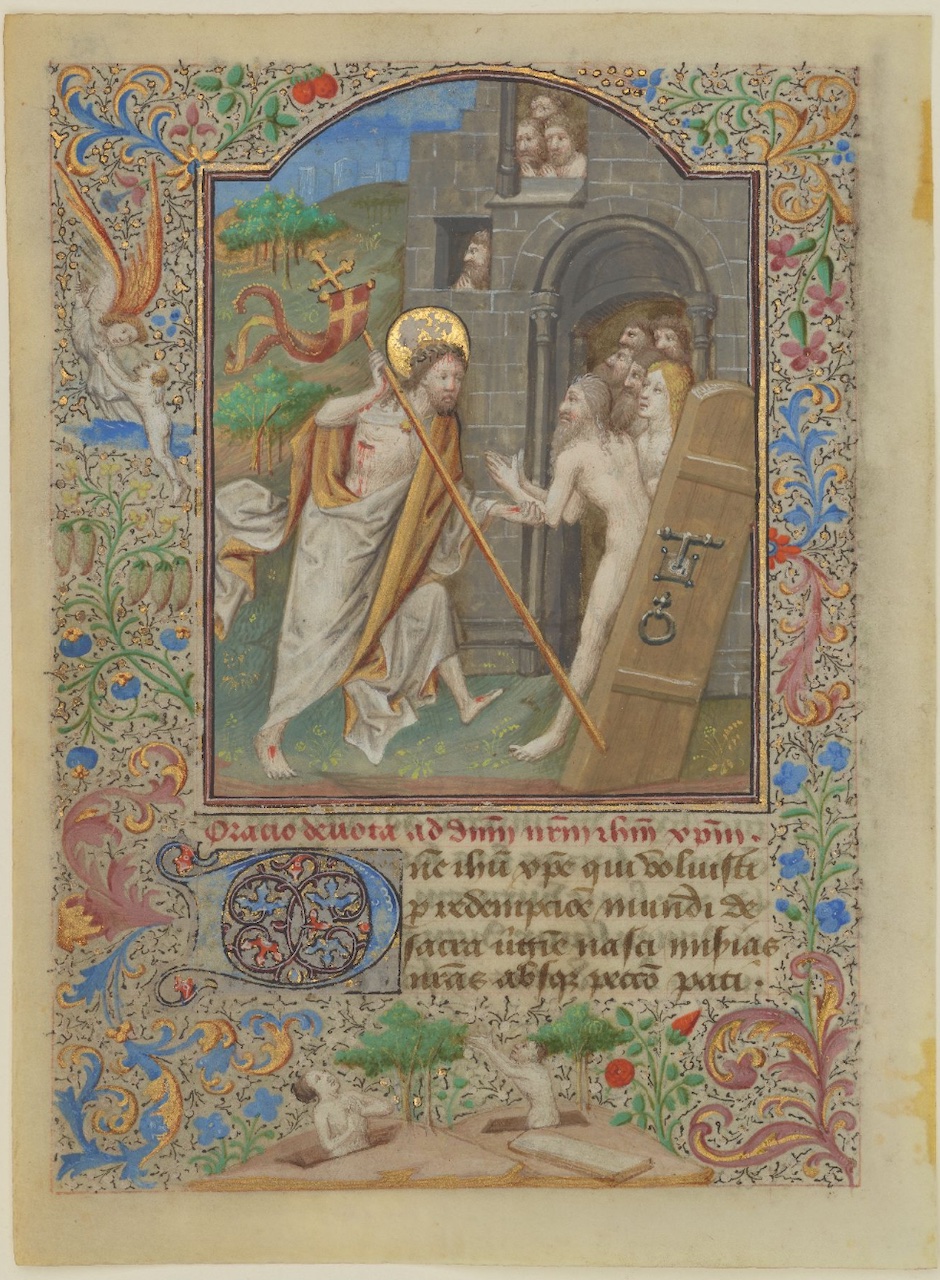 Oracio deuota ad dnm nrm ihm xpm.
Dne ihu xpe qui voluisti
p redempcioe mundi de
sacra uirgie nasci
absq; pccō pati.